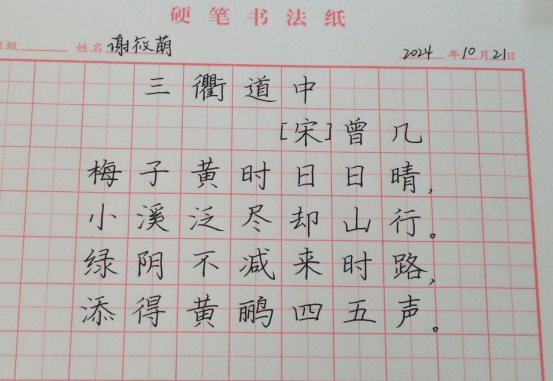 硬笔书法纸
班级 姓名 谢筱萌 2024年10月21日
三衢道中
[宋]曾几
梅子黄时日日晴,
小溪泛尽却山行。
绿阴不减来时路,
添得黄鹂四五声。